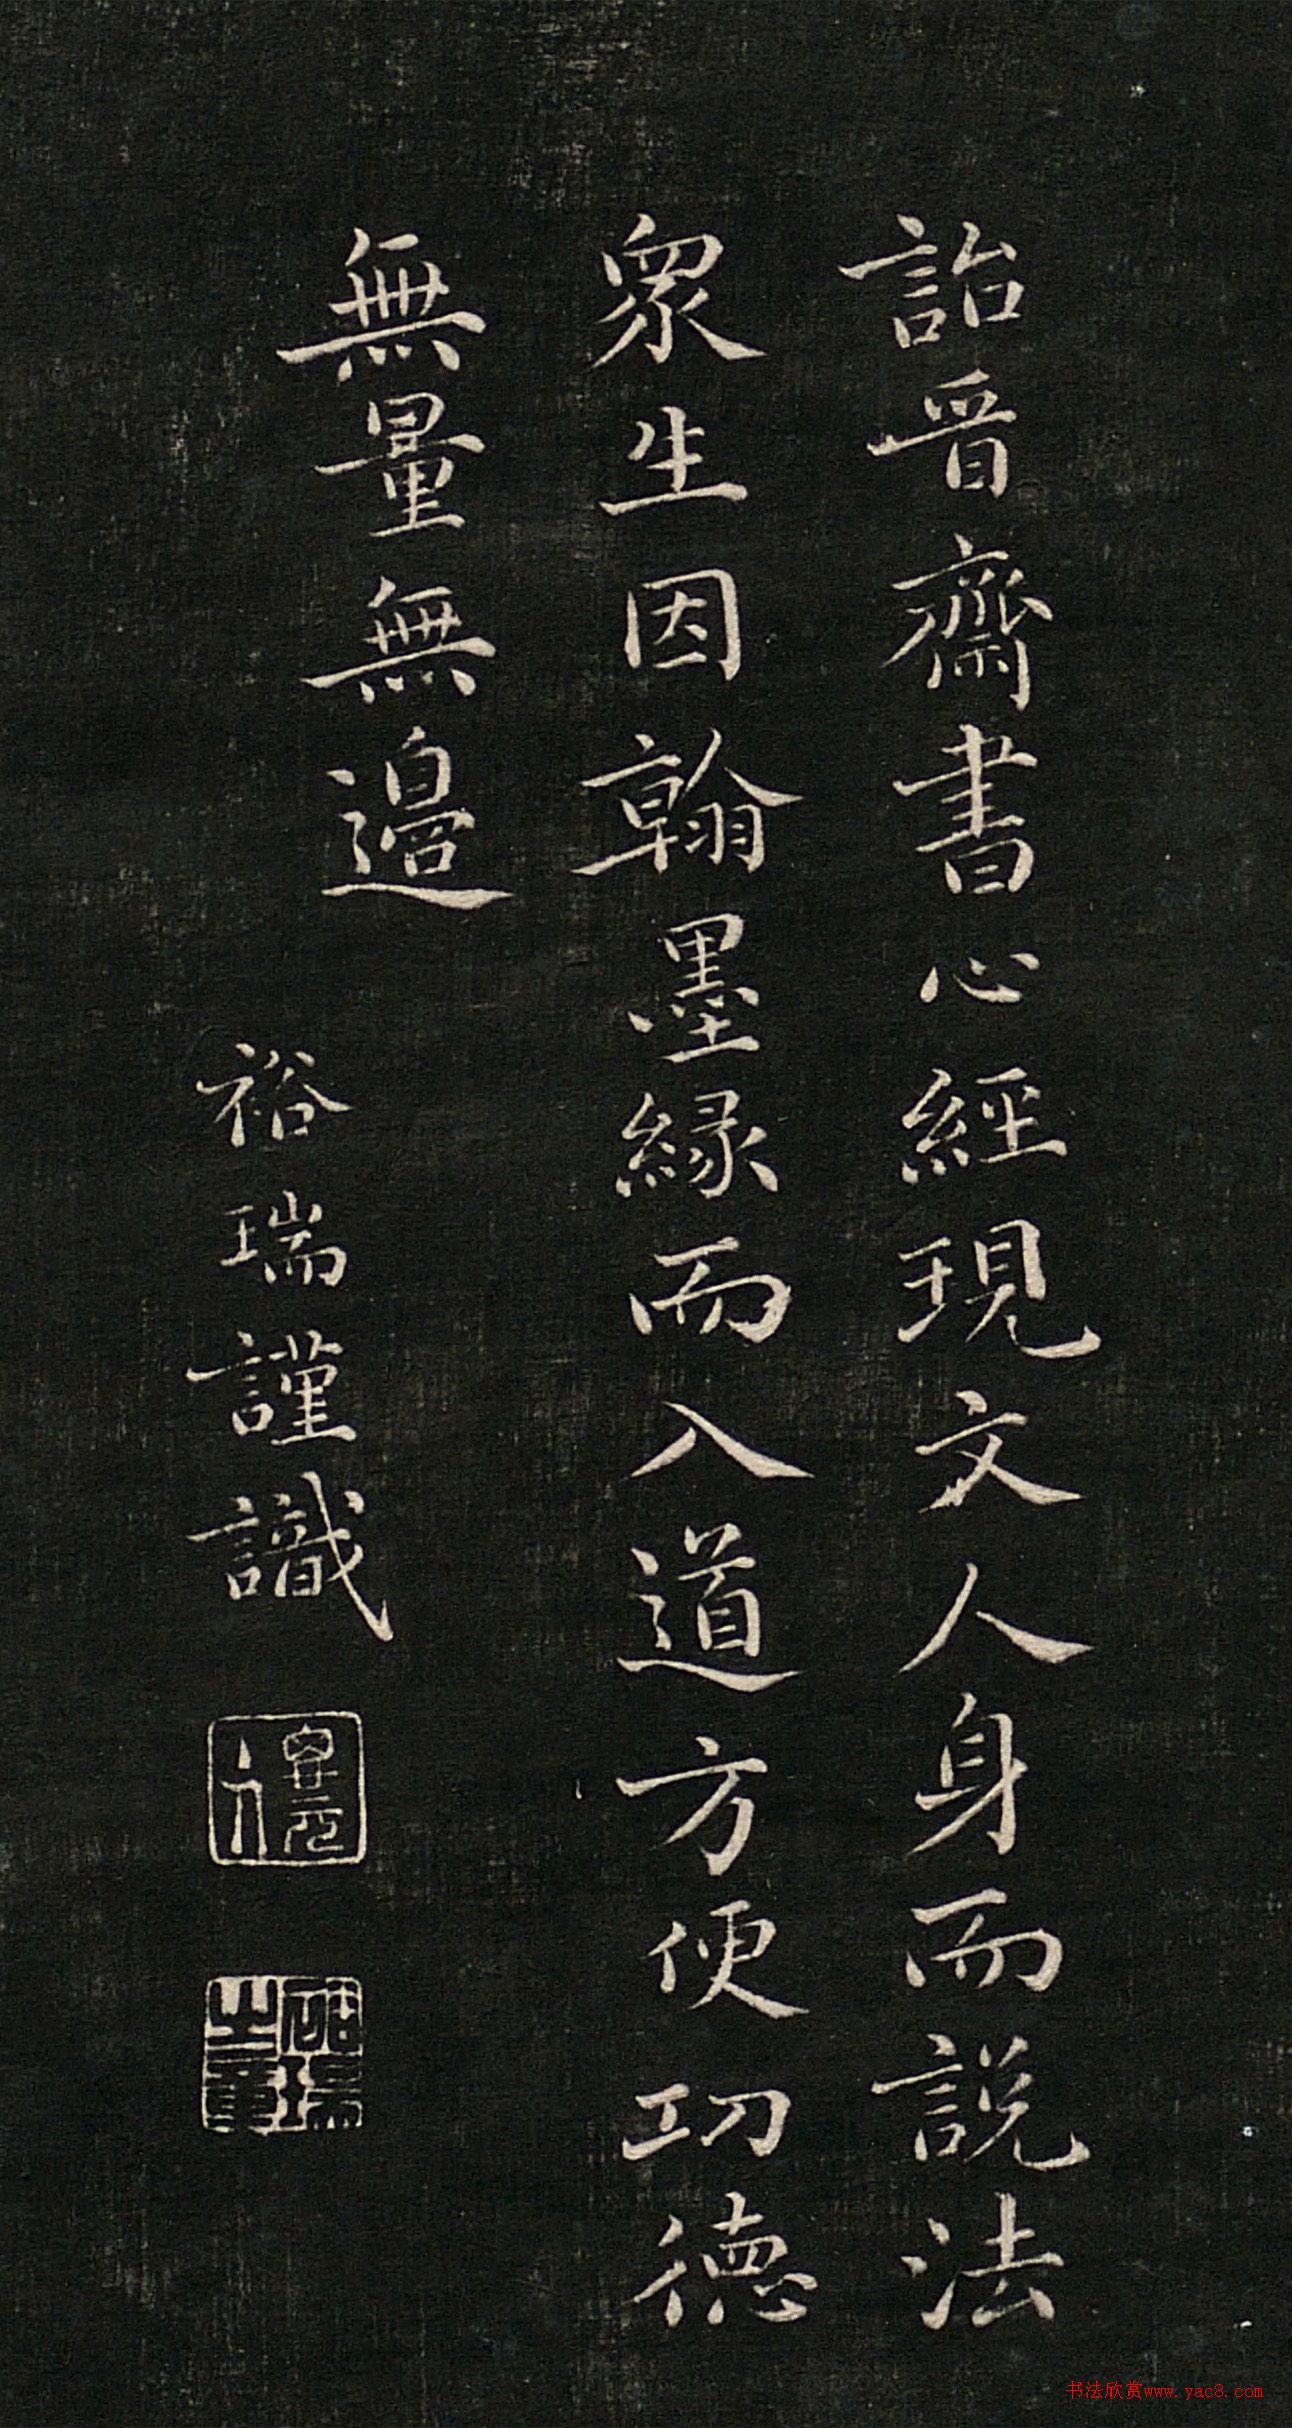 詒晉齋書心經現文人身而說法
眾生因翰墨緣而入道方便功德
無量無邊
裕瑞謹識
裕瑞之章
书法欣赏www.yac8.com